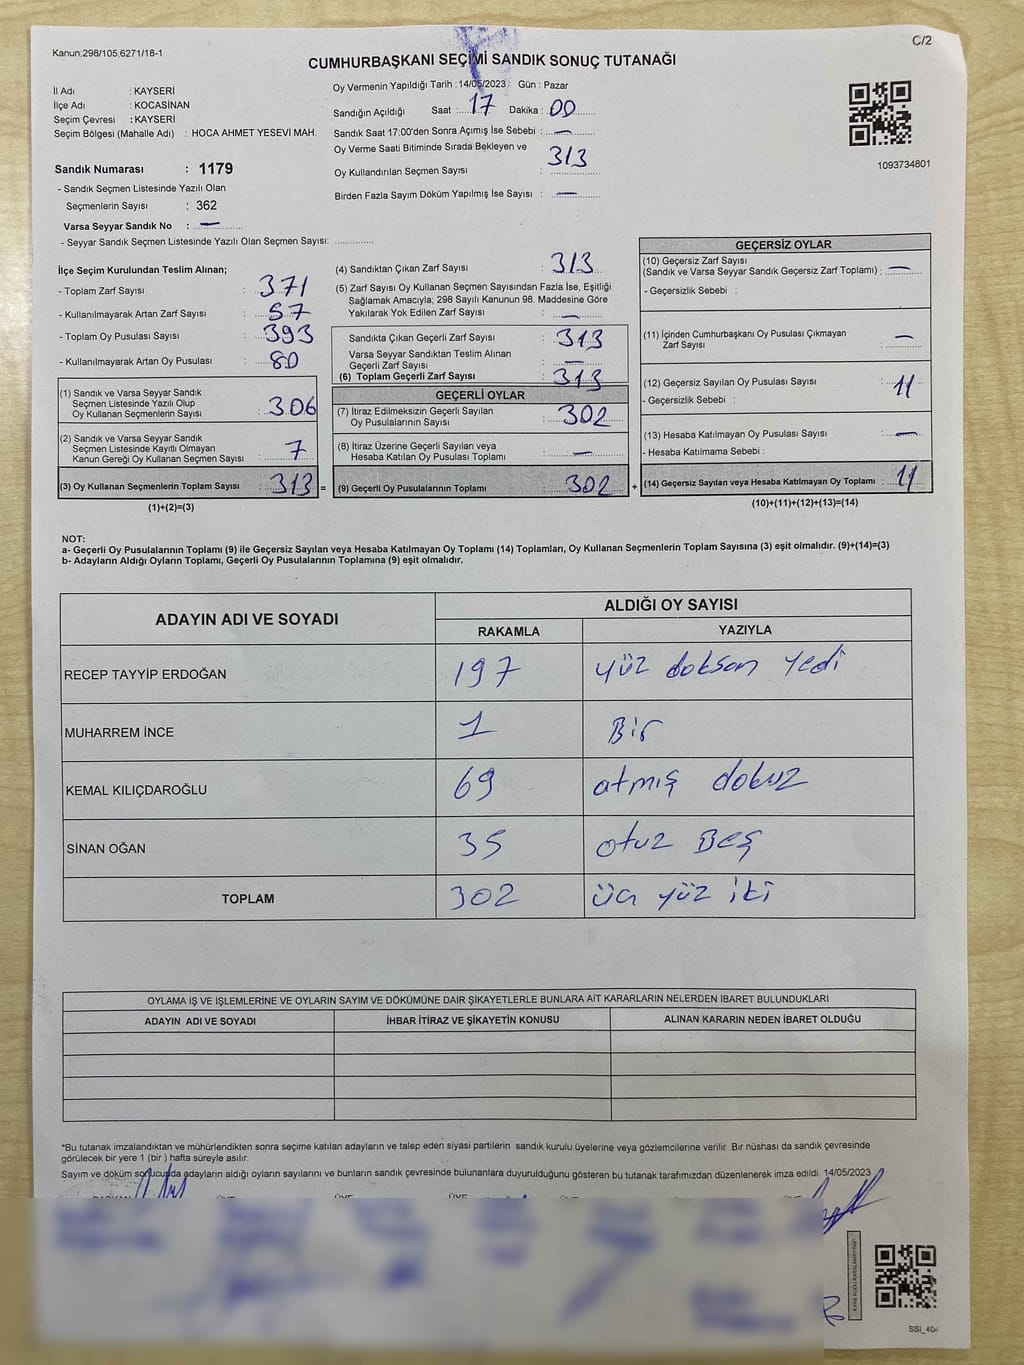 Kanun;298/105,6271/18-1
C/2
CUMHURBAŞKANI SEÇİMİ SANDIK SONUÇ TUTANAĞI
İl Adı : KAYSERİ
İlçe Adı : KOCASİNAN
Seçim Çevresi : KAYSERİ
Seçim Bölgesi (Mahalle Adı) : HOCA AHMET YESEVİ MAH.
Sandık Numarası : 1179
- Sandık Seçmen Listesinde Yazılı Olan
Seçmenlerin Sayısı : 362
Varsa Seyyar Sandık No : —
- Seyyar Sandık Seçmen Listesinde Yazılı Olan Seçmen Sayısı: ............
Oy Vermenin Yapıldığı Tarih :14/05/2023 Gün : Pazar
Sandığın Açıldığı Saat :17 Dakika : 00
Sandık Saat 17:00'den Sonra Açımış İse Sebebi : —
Oy Verme Saati Bitiminde Sırada Bekleyen ve
Oy Kullandırılan Seçmen Sayısı : 313
Birden Fazla Sayım Döküm Yapılmış İse Sayısı : —
1093734801
İlçe Seçim Kurulundan Teslim Alınan;
- Toplam Zarf Sayısı : 371
- Kullanılmayarak Artan Zarf Sayısı : 57
- Toplam Oy Pusulası Sayısı : 393
- Kullanılmayarak Artan Oy Pusulası : 80
(1) Sandık ve Varsa Seyyar Sandık
Seçmen Listesinde Yazılı Olup
Oy Kullanan Seçmenlerin Sayısı : 306
(2) Sandık ve Varsa Seyyar Sandık
Seçmen Listesinde Kayıtlı Olmayan
Kanun Gereği Oy Kullanan Seçmen Sayısı : 7
(3) Oy Kullanan Seçmenlerin Toplam Sayısı : 313 =
(1)+(2)=(3)
(4) Sandıktan Çıkan Zarf Sayısı : 313
(5) Zarf Sayısı Oy Kullanan Seçmen Sayısından Fazla İse, Eşitliği
Sağlamak Amacıyla; 298 Sayılı Kanunun 98. Maddesine Göre
Yakılarak Yok Edilen Zarf Sayısı : —
Sandıkta Çıkan Geçerli Zarf Sayısı : 313
Varsa Seyyar Sandıktan Teslim Alınan
Geçerli Zarf Sayısı : —
(6) Toplam Geçerli Zarf Sayısı : 313
GEÇERLİ OYLAR
(7) İtiraz Edilmeksizin Geçerli Sayılan
Oy Pusulalarının Sayısı : 302
(8) İtiraz Üzerine Geçerli Sayılan veya
Hesaba Katılan Oy Pusulası Toplamı : —
(9) Geçerli Oy Pusulalarının Toplamı : 302 +
GEÇERSİZ OYLAR
(10) Geçersiz Zarf Sayısı
(Sandık ve Varsa Seyyar Sandık Geçersiz Zarf Toplamı) : —
- Geçersizlik Sebebi :
(11) İçinden Cumhurbaşkanı Oy Pusulası Çıkmayan
Zarf Sayısı : —
(12) Geçersiz Sayılan Oy Pusulası Sayısı : 11
- Geçersizlik Sebebi :
(13) Hesaba Katılmayan Oy Pusulası Sayısı : —
- Hesaba Katılmama Sebebi :
(14) Geçersiz Sayılan veya Hesaba Katılmayan Oy Toplamı : 11
(10)+(11)+(12)+(13)=(14)
NOT:
a- Geçerli Oy Pusulalarının Toplamı (9) ile Geçersiz Sayılan veya Hesaba Katılmayan Oy Toplamı (14) Toplamları, Oy Kullanan Seçmenlerin Toplam Sayısına (3) eşit olmalıdır. (9)+(14)=(3)
b- Adayların Aldığı Oyların Toplamı, Geçerli Oy Pusulalarının Toplamına (9) eşit olmalıdır.
ADAYIN ADI VE SOYADI
ALDIĞI OY SAYISI
RAKAMLA YAZIYLA
RECEP TAYYİP ERDOĞAN 197 yüz doksan yedi
MUHARREM İNCE 1 Bir
KEMAL KILIÇDAROĞLU 69 atmış dokuz
SİNAN OĞAN 35 otuz BEŞ
TOPLAM 302 üç yüz iki
OYLAMA İŞ VE İŞLEMLERİNE VE OYLARIN SAYIM VE DÖKÜMÜNE DAİR ŞİKAYETLERLE BUNLARA AİT KARARLARIN NELERDEN İBARET BULUNDUKLARI
ADAYIN ADI VE SOYADI İHBAR İTİRAZ VE ŞİKAYETİN KONUSU ALINAN KARARIN NEDEN İBARET OLDUĞU
*Bu tutanak imzalandıktan ve mühürlendikten sonra seçime katılan adayların ve talep eden siyasi partilerin sandık kurulu üyelerine veya gözlemcilerine verilir Bir nüshası da sandık çevresinde
görülecek bir yere 1 (bir ) hafta süreyle asılır.
Sayım ve döküm sonucunda adayların aldığı oyların sayılarını ve bunların sandık çevresinde bulunanlara duyurulduğunu gösteren bu tutanak tarafımızdan düzenlenerek imza edildi. 14/05/2023